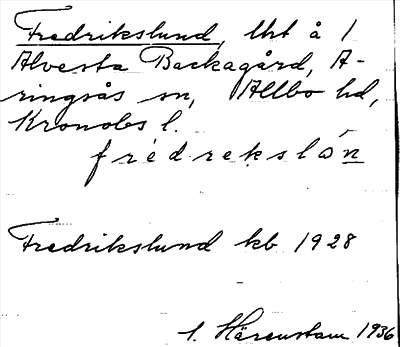 Fredrikslund, lht å 1
Alvesta Backagård, A-
ringsås sn, Allbo hd,
Kronobs l.
frédrekslón
Fredrikslund kb 1928
1. Härenstam 1936